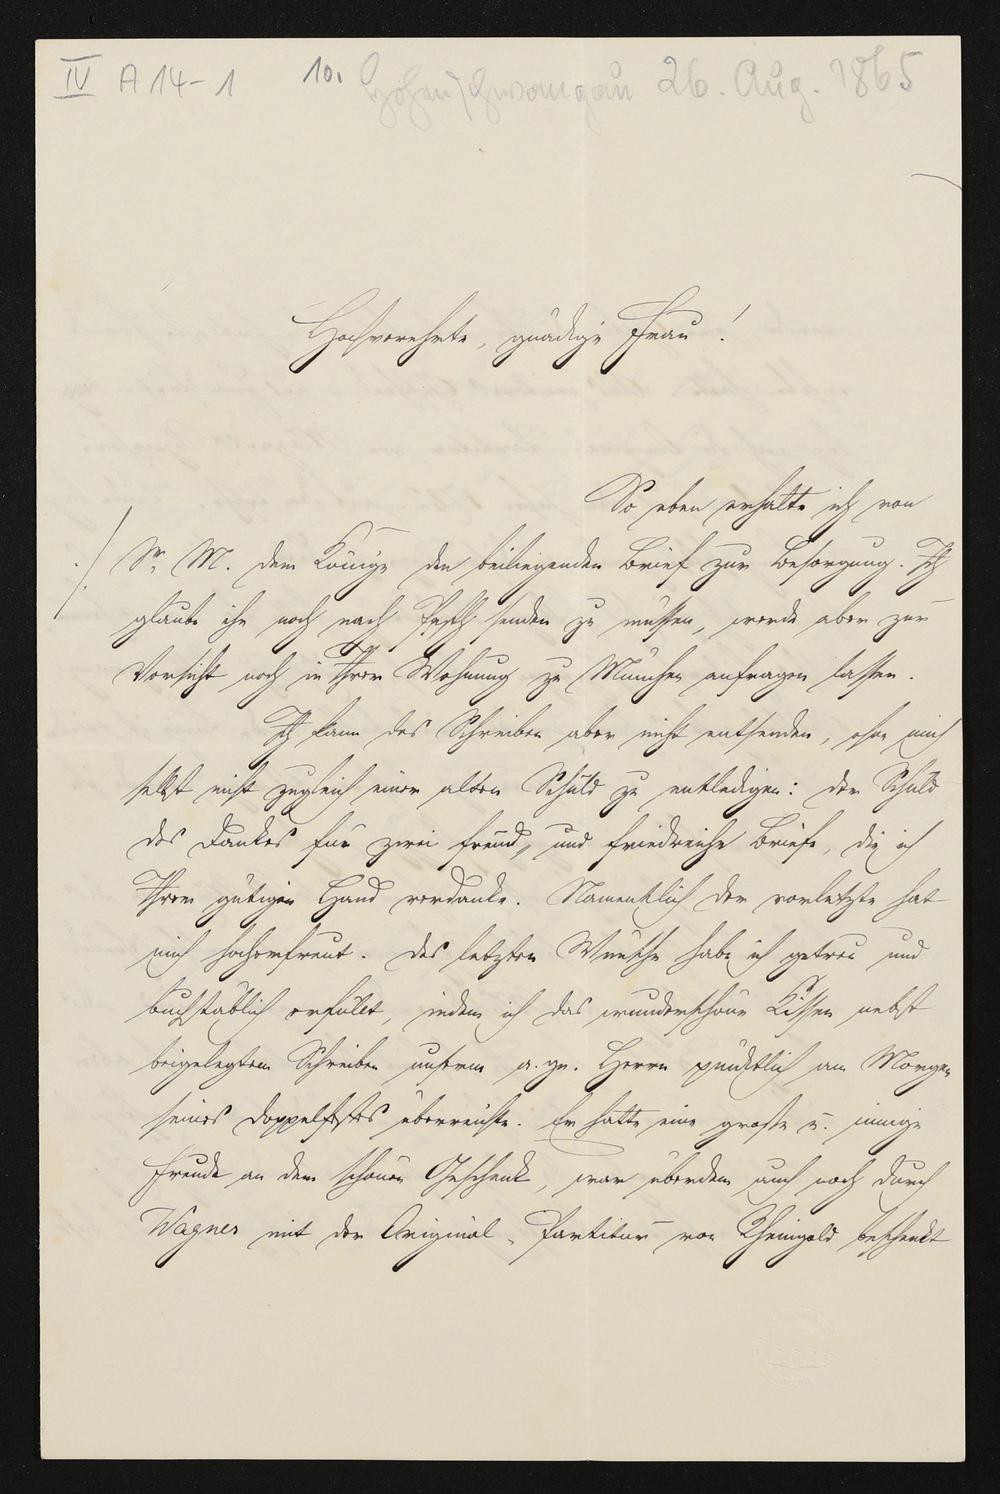 IV A 14-1 10. Hohenschwangau 26. Aug. 1865
Hochverehrte, gnädige Frau!
So eben erhalte ich von
Sr. M. dem Könige den beiliegenden Brief zur Besorgung. Ich
glaube ihn noch nach Pesth senden zu müssen, werde aber zur
Vorsicht noch in Ihrer Wohnung zu München anfragen lassen.
Ich kann das Schreiben aber nicht entsenden, ohne mich
selbst nicht zugleich einer alten Schuld zu entledigen: der Schuld
des Dankes für zwei freud- und friedreiche Briefe, die ich
Ihrer gütigen Hand verdanke. Namentlich der vorletzte hat
mich hocherfreut. Des letzten Wünsche habe ich getreu und
buchstäblich erfüllt, indem ich das wunderschöne Kissen nebst
beigelegtem Schreiben unsrem a. gn. Herrn pünktlich am Morgen
seines Doppelfestes überreichte. Er hatte eine große u. innige
Freude an dem schönen Geschenk, war überdem auch noch durch
Wagner mit der Original-Partitur von Rheingold beschenkt